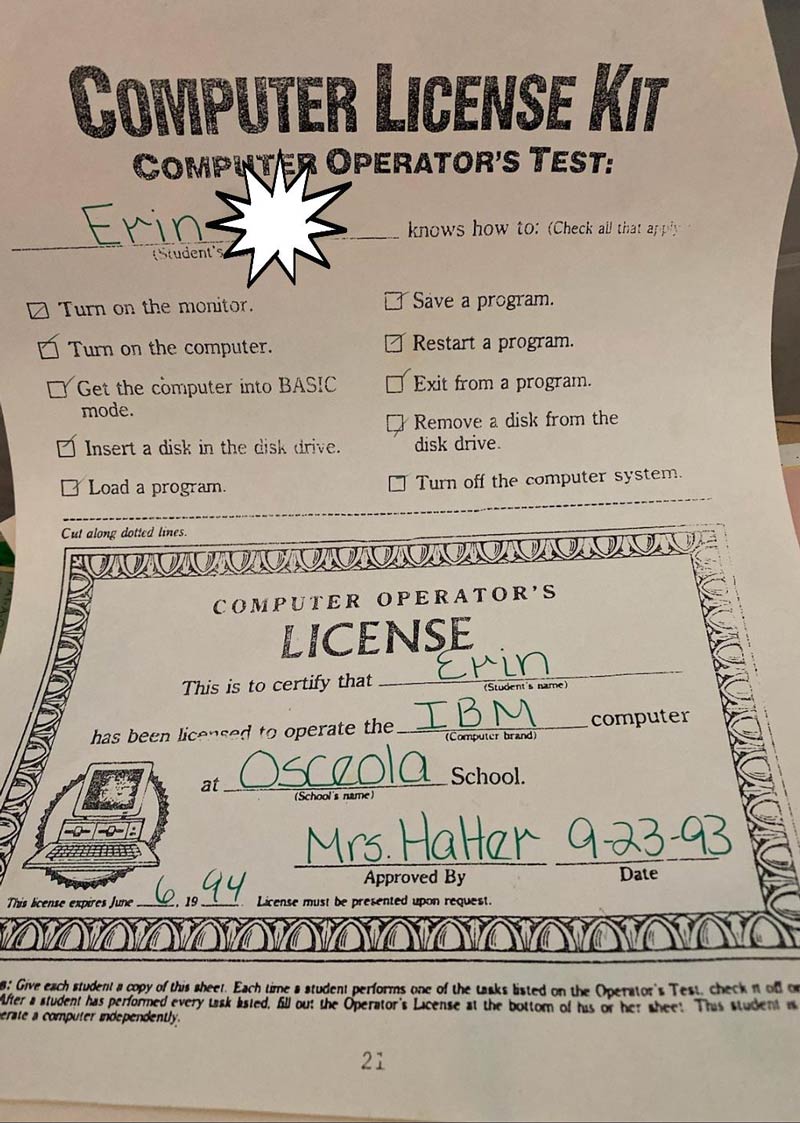 COMPUTER LICENSE KIT
COMPUTER OPERATOR'S TEST:
Erin knows how to: (Check all that apply
(Student's
Turn on the monitor.
Turn on the computer.
Get the computer into BASIC
mode.
Insert a disk in the disk drive.
Load a program.
Save a program.
Restart a program.
Exit from a program.
Remove a disk from the
disk drive.
Turn off the computer system.
Cut along dotted lines.
COMPUTER OPERATOR'S
LICENSE
This is to certify that Erin
(Student's name)
has been licensed to operate the IBM computer
(Computer brand)
at Osceola School.
(School's name)
Mrs. Halter 9-23-93
Approved By Date
This license expires June 6, 1994. License must be presented upon request.
Give each student a copy of this sheet. Each time a student performs one of the tasks listed on the Operator's Test, check it off
After a student has performed every task listed, fill out the Operator's License at the bottom of his or her sheet. This student is
a computer independently.
21